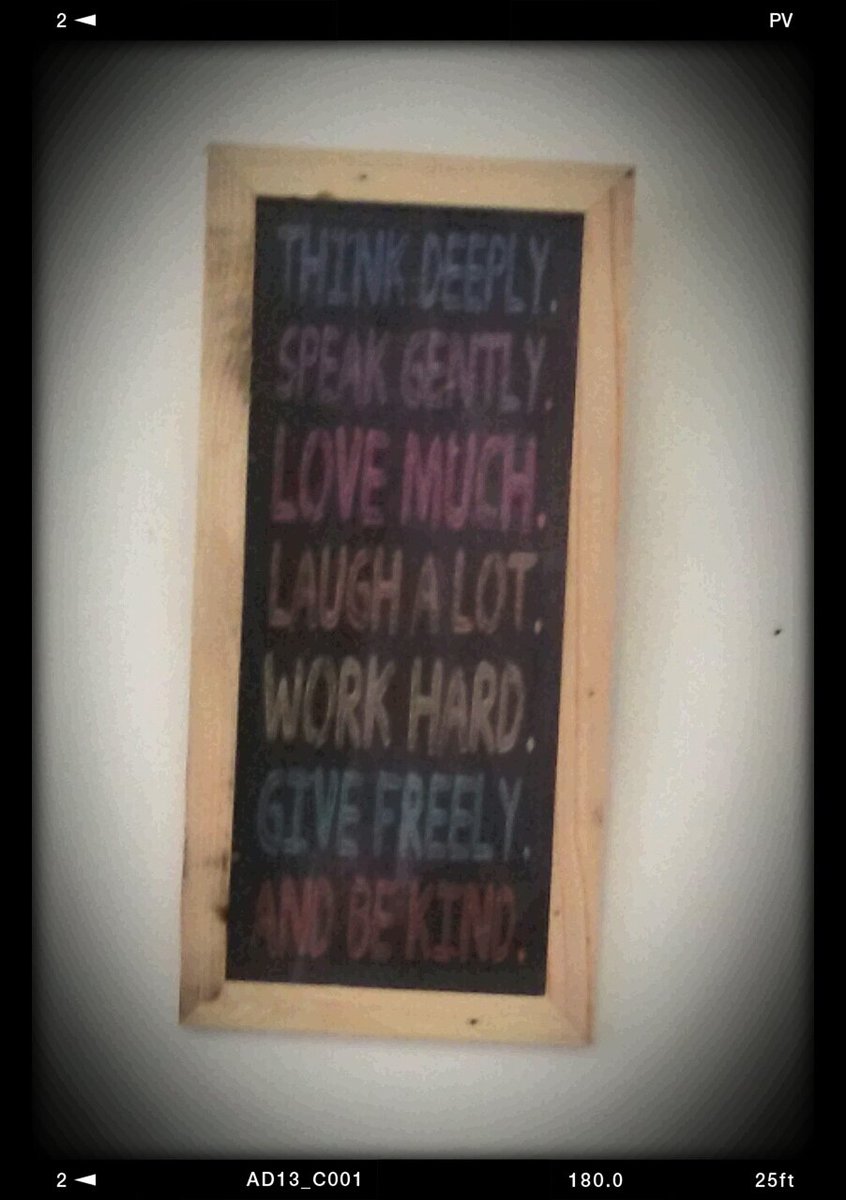 2 PV
THINK DEEPLY.
SPEAK GENTLY.
LOVE MUCH.
LAUGH A LOT.
WORK HARD.
GIVE FREELY.
AND BE KIND.
2 AD13_C001 180.0 25ft